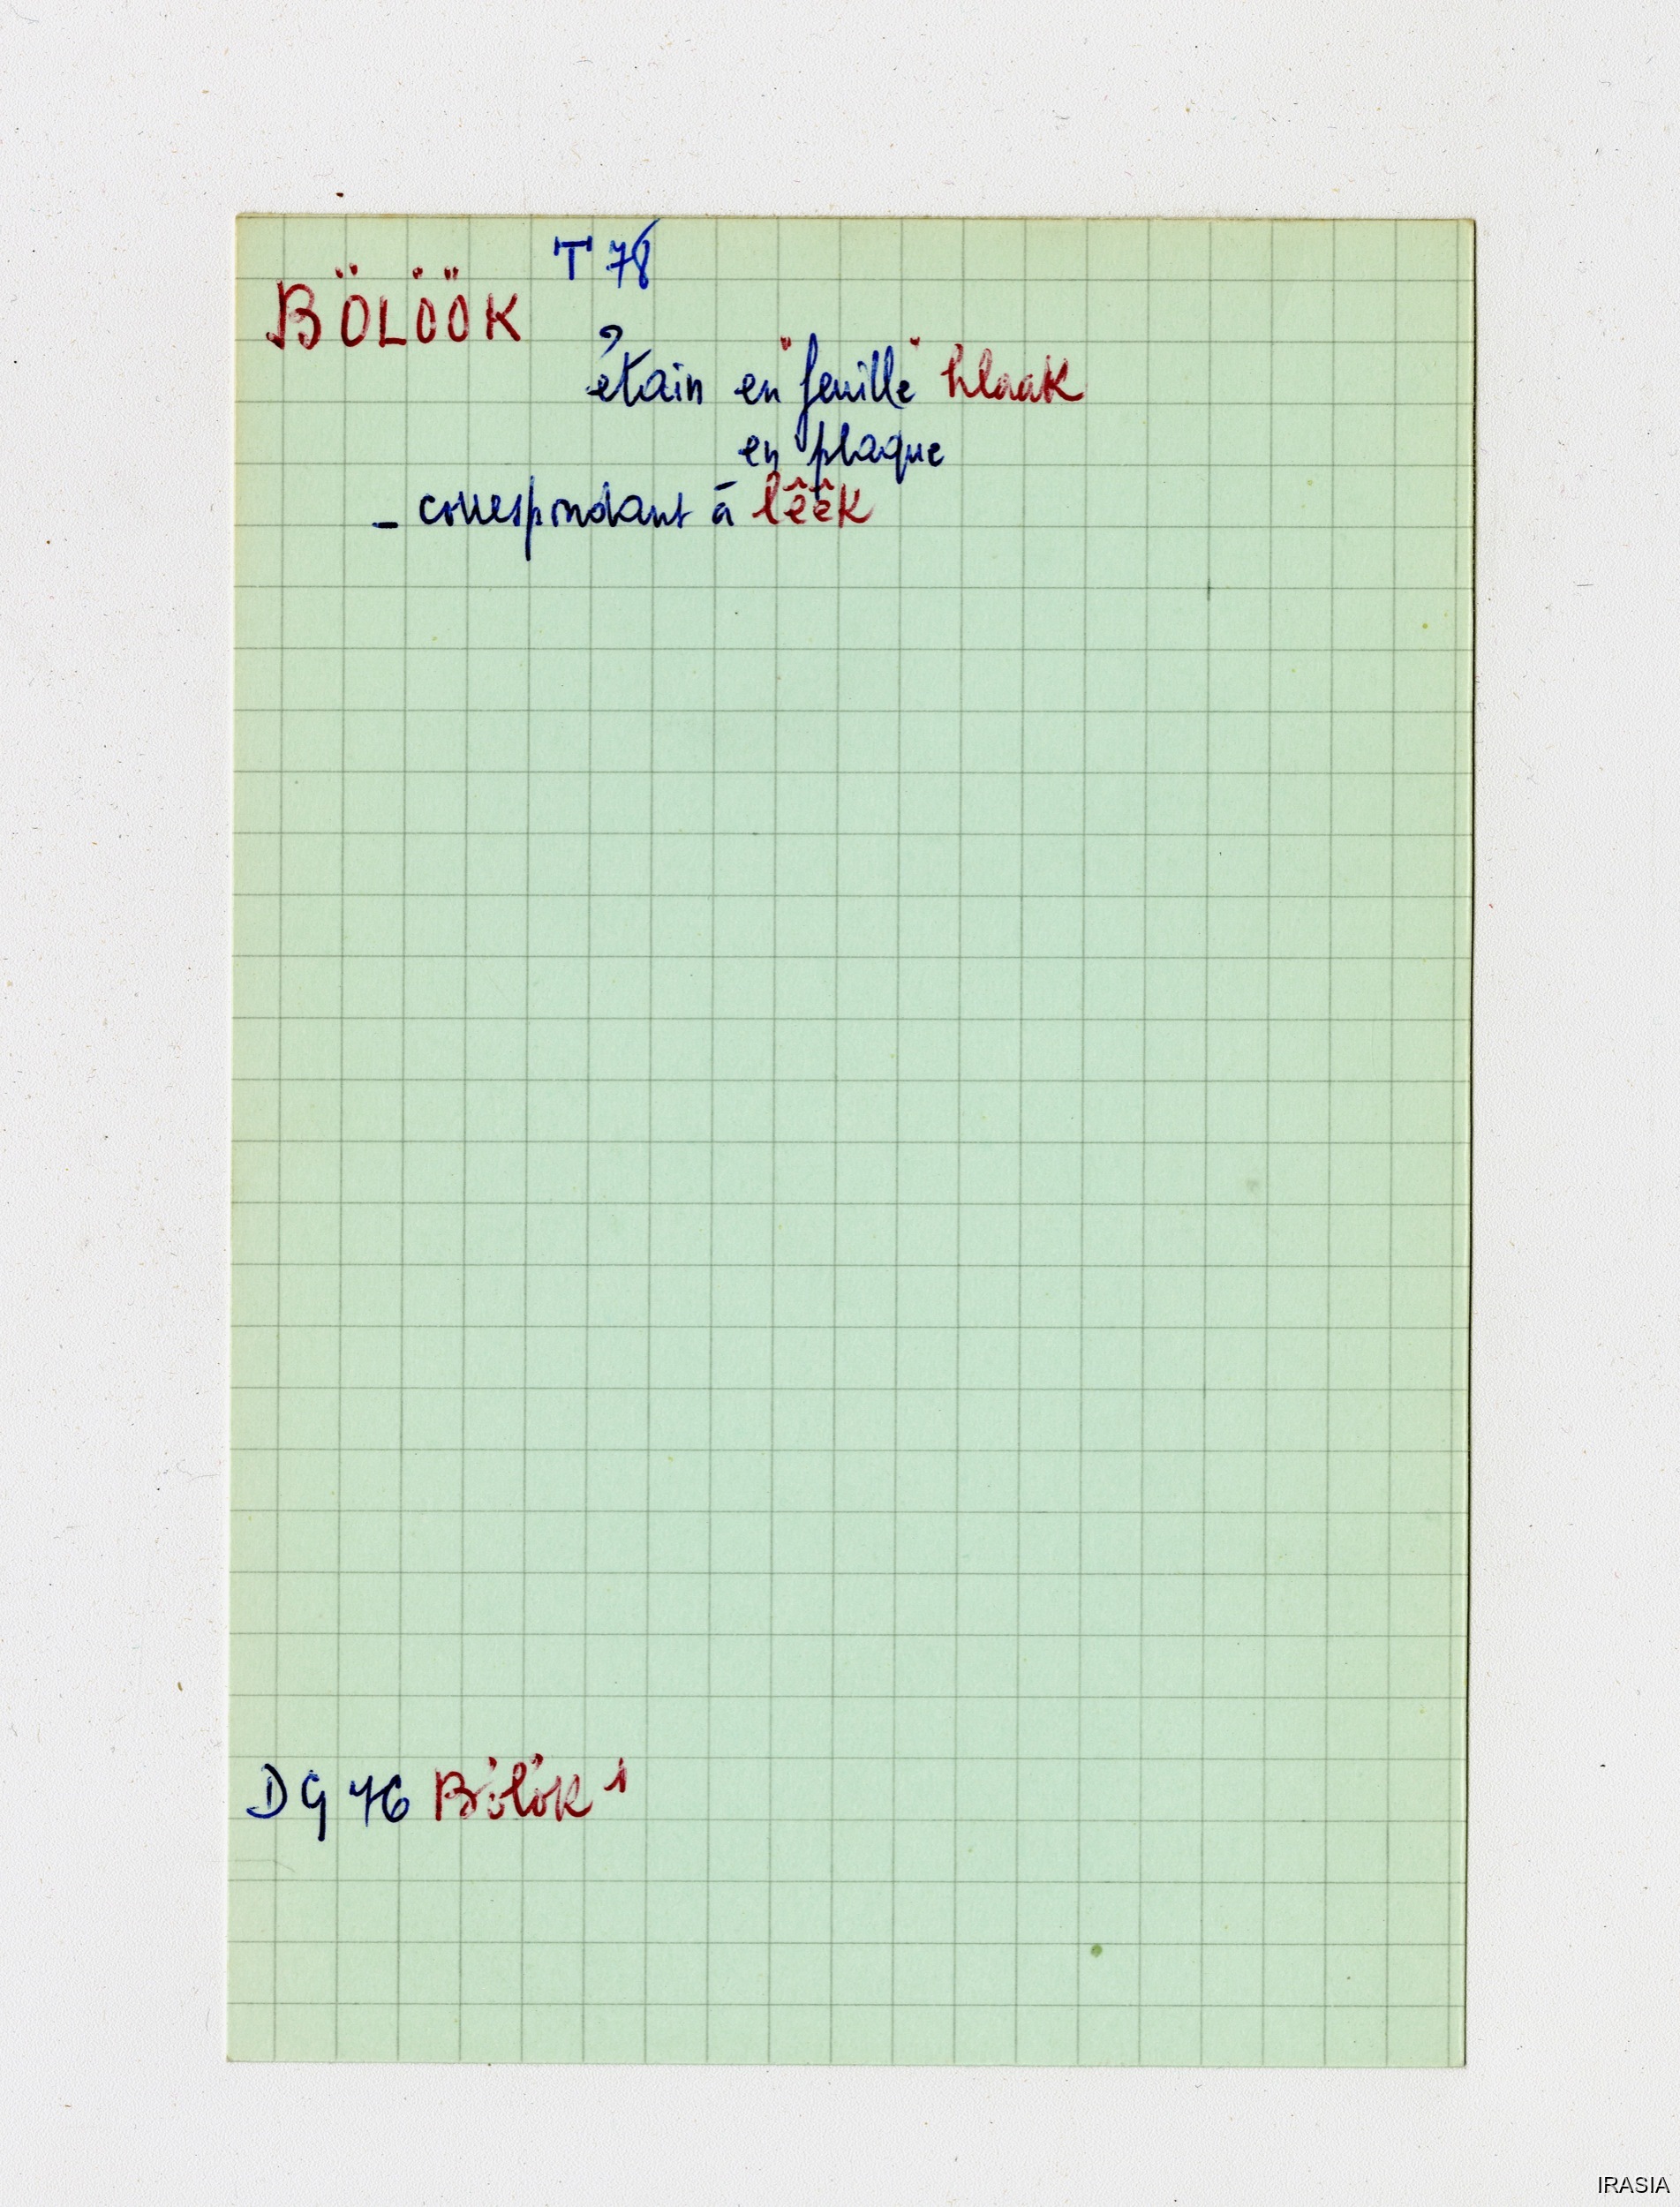 T 78
BÖLÖÖK
?
étain en "feuille" hlaak
en plaque
- correspondant à lêêk
DG 76 Bölök 1
IRASIA